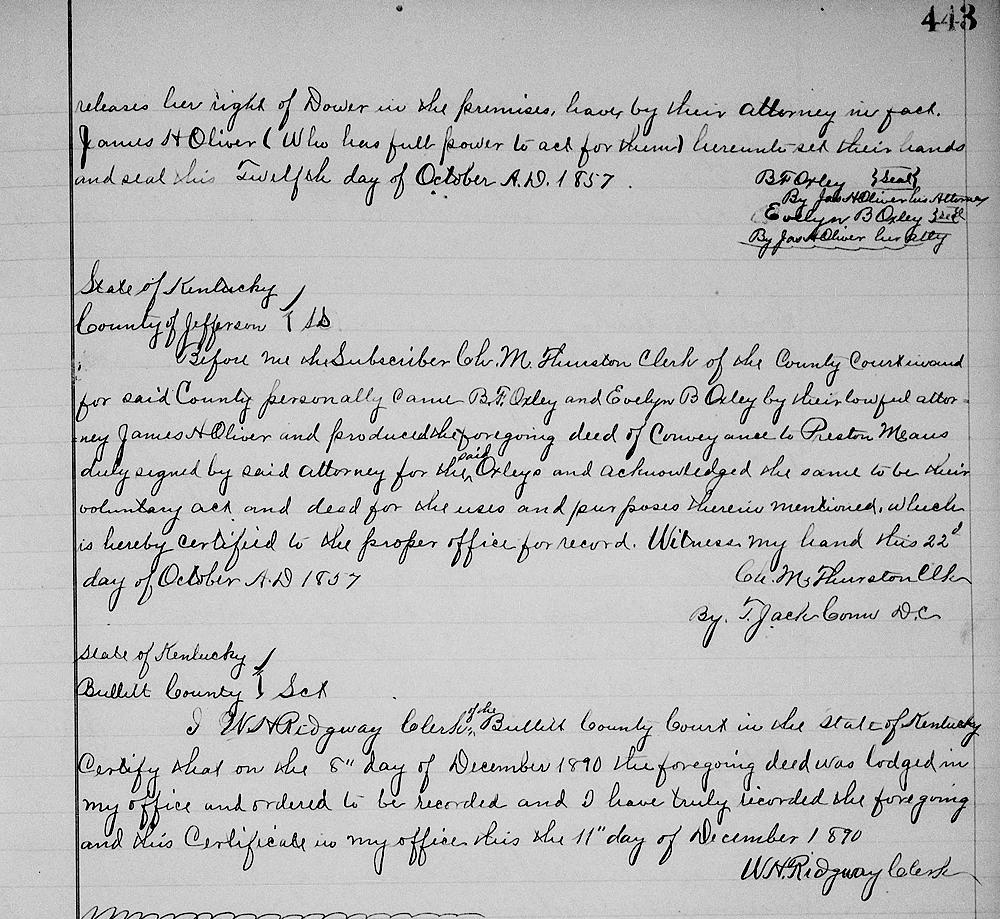 443
releases her right of Dower in the premises, have, by their attorney in fact.
James H Oliver ( Who has full power to act for them) hereunto set their hands
and seal this Twelfth day of October A.D. 1857.
B F Oxley {Seal}
By Jas H Oliver his Attorney
Evelyn B Oxley {seal}
By Jas H Oliver her atty
State of Kentucky
County of Jefferson } SS
Before me the Subscriber Ch. M. Thurston Clerk of the County Court in and
for said County personally came B. F. Oxley and Evelyn B Oxley by their lawful attor-
-ney James H Oliver and produced the foregoing deed of Conveyance to Preston Means
duly signed by said attorney for the said Oxleys and acknowledged the same to be their
voluntary act and deed for the uses and purposes therein mentioned, which
is hereby certified to the proper office for record. Witness my hand this 22d
day of October A.D 1857
Ch. M. Thurston Clk
By. T. Jack Conn D.C
State of Kentucky
Bullitt County } Sct
I W.H Ridgway Clerk of the Bullitt County Court in the State of Kentucky
Certify that on the 8" day of December 1890 the foregoing deed was lodged in
my office and ordered to be recorded and I have truly recorded the foregoing
and this Certificate in my office this the 11" day of December 1890
W.H. Ridgway Clerk